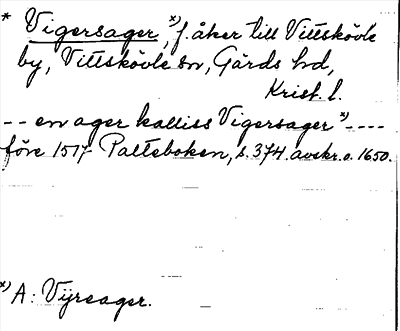 * Vigersager,*) f. åker till Vittskövle
by, Vittskövle sn, Gärds hd,
Krist. l.
-- en ager kalliss Vigersager*) ----
före 1517 Palteboken, s. 374. avskr. o. 1650.
*) A: Vijrsager.